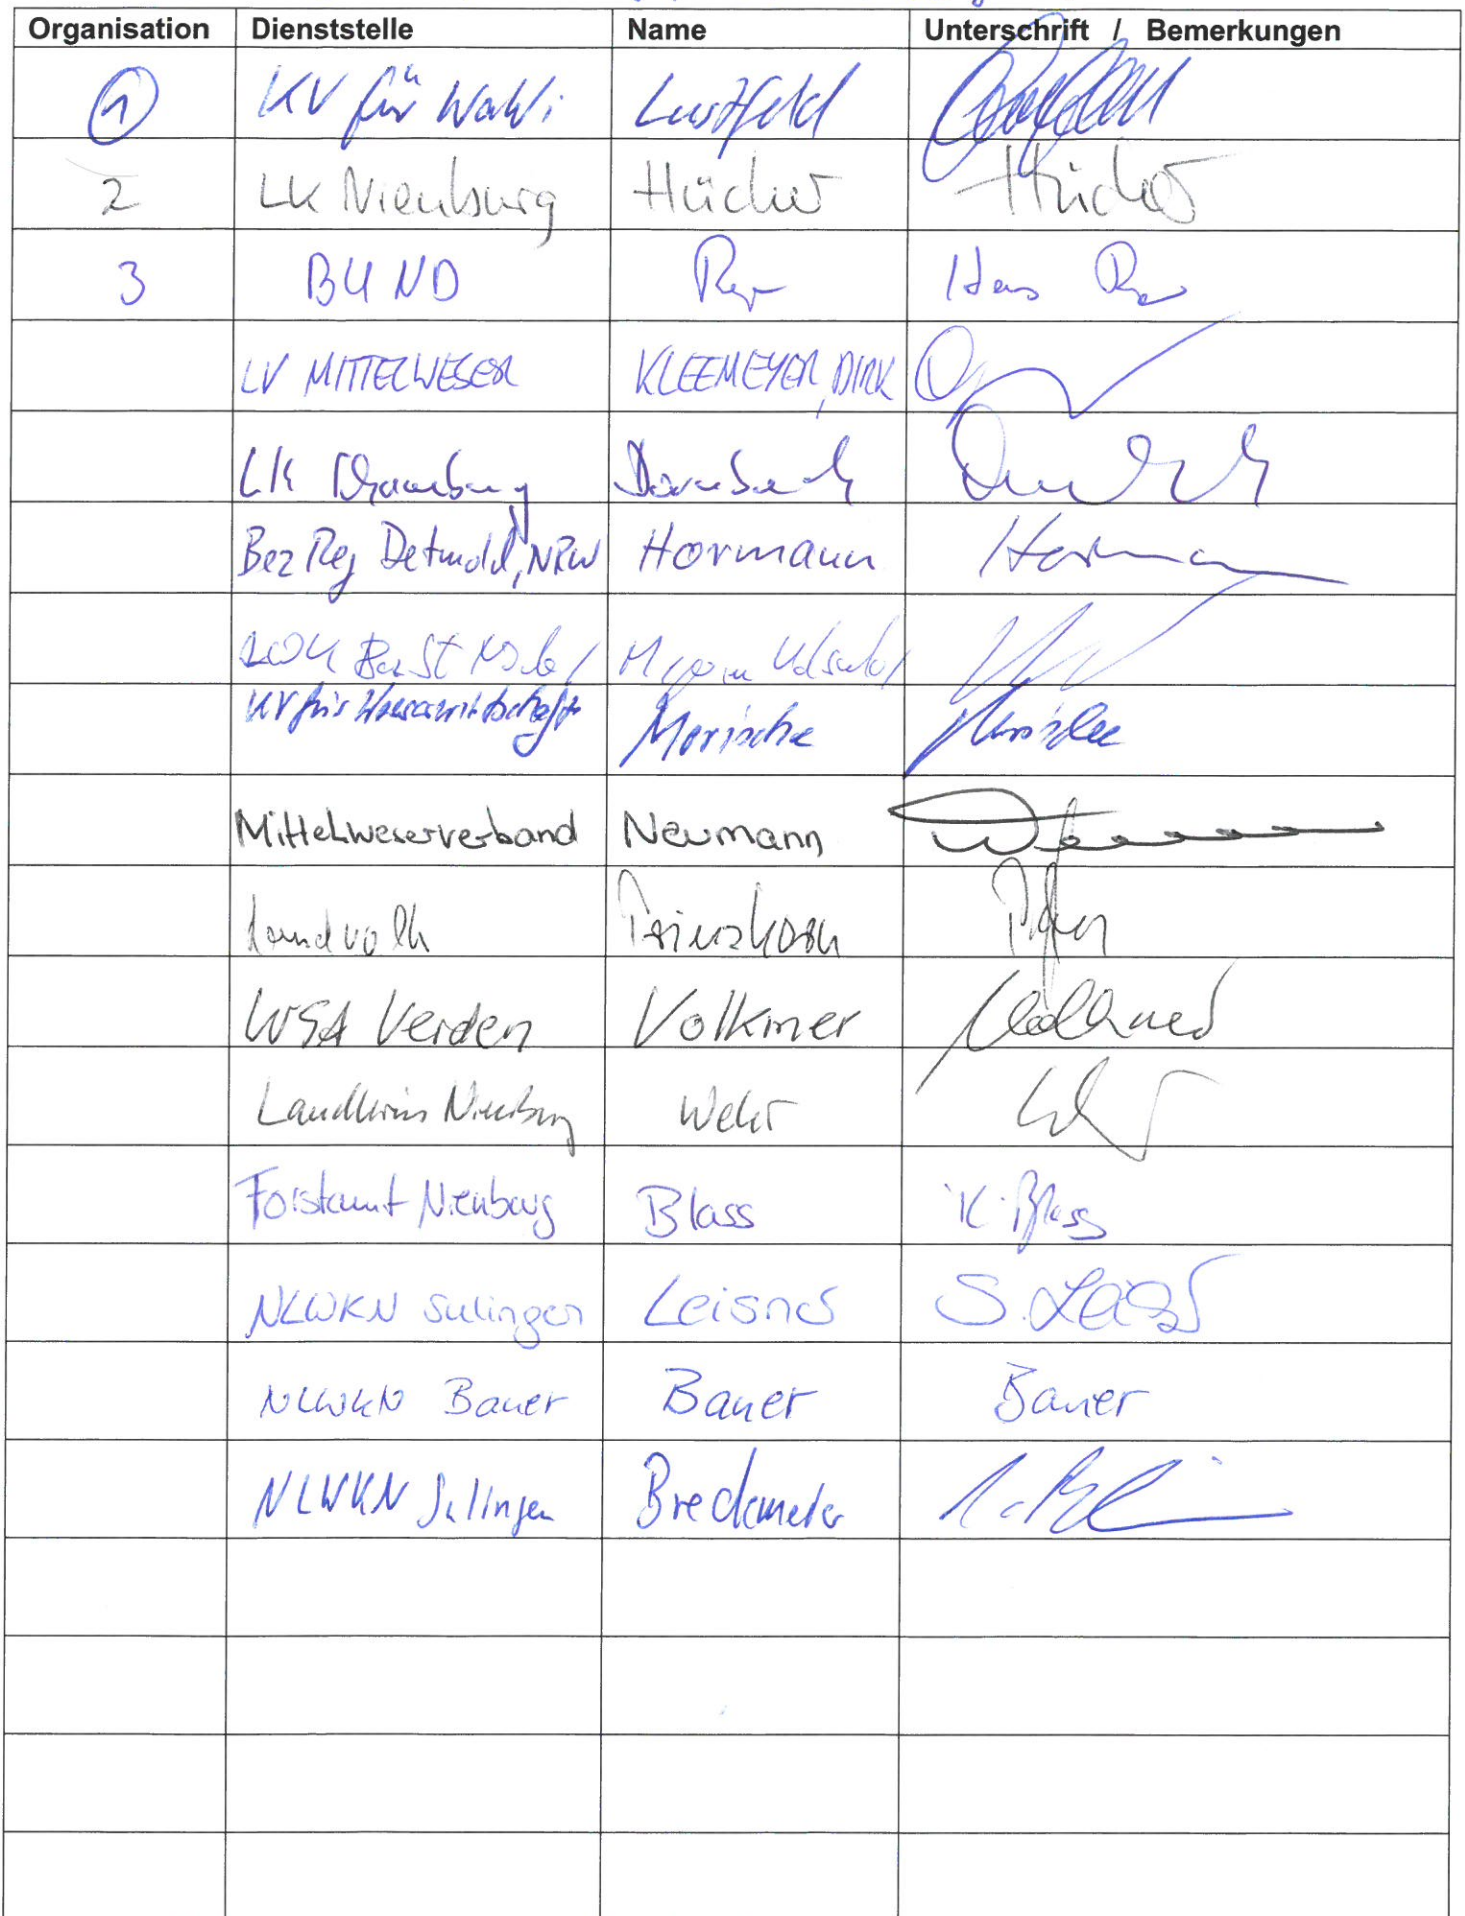 Organisation Dienststelle Name Unterschrift / Bemerkungen
1 KV für WaWi Lustfeld
2 LK Nienburg Hücker Hücker
3 BUND Hans
LV MITTELWESER KLEEMEYER, DIRK
LK Schaumburg
Bez Reg Detmold, NRW Hormann Hormann
KV für Wasserwirtschaft Morische Morische
Mittelweserverband Neumann
Landvolk Prinzhorn
WSA Verden Volkmer Volkmer
Landkreis Nienburg Wehr
Forstamt Nienburg Blass K. Blass
NLWKN Sulingen Leisner S.
NLWKN Bauer Bauer Bauer
NLWKN Sulingen Breckmeier